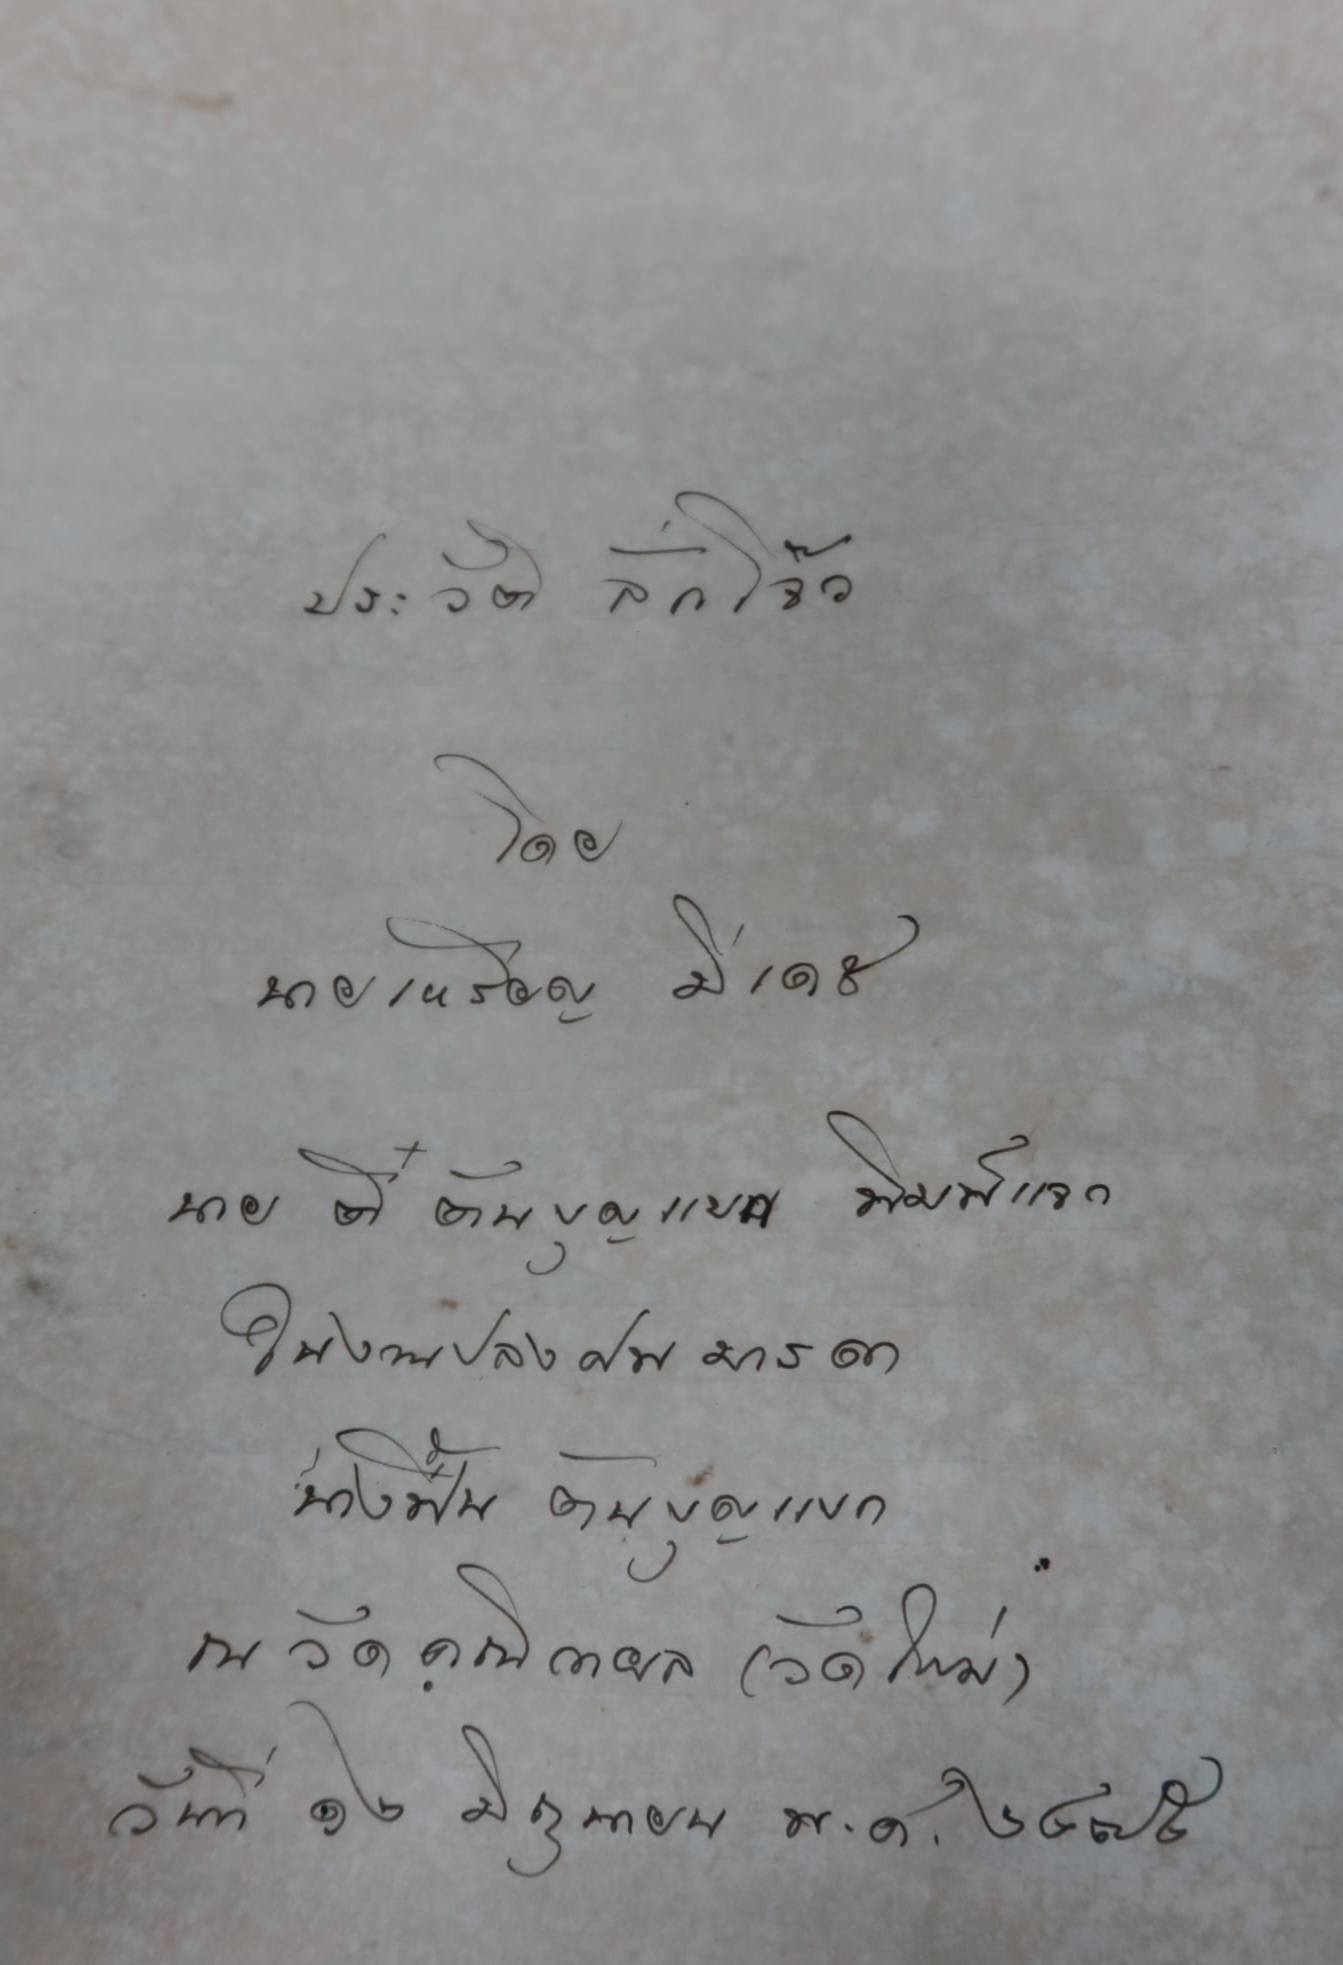 ประวัติ ลักโจ๊ว
โดย
นายเหรียญ มีเดช
นาย ตี๋ ตันบุญแบก พิมพ์แจก
ในงานปลงศพ มารดา
นางฟื้น ตันบุญแบก
ณ วัด (วัดใหม่)
วันที่ ๑๒ มิถุนายน พ.ศ. ๒๔๗๕